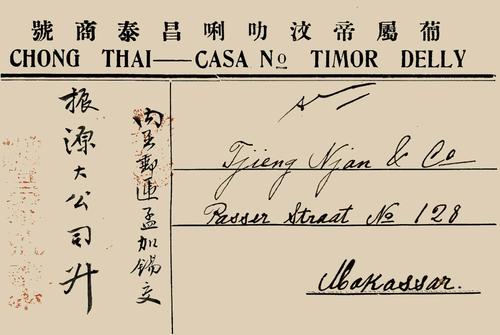 葡屬帝汶叻唎昌泰商號
CHONG THAI — CASA Nº TIMOR DELLY
內呈郵遞孟加錫交
振源大公司升
Tjieng Njan & Co
Passer Straat No 128
Makassar.